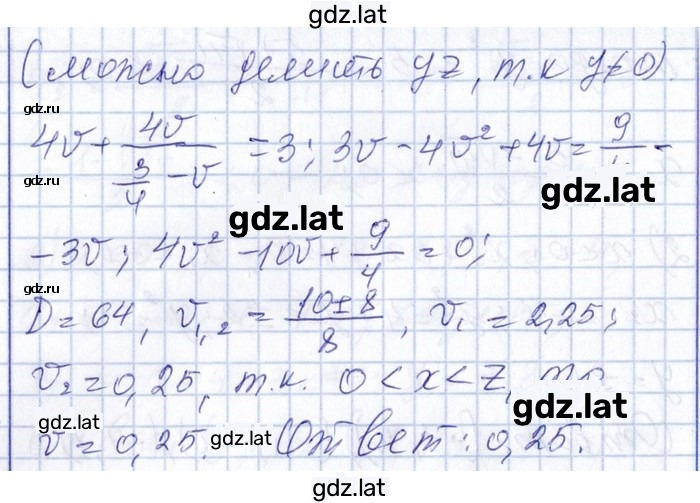 gdz.lat
(можно делить yz, т.к y≠0).
gdz.ru
4v + 4v/(3/4 - v) = 3; 3v - 4v² + 4v = 9/4 -
gdz.lat
gdz.ru
gdz.lat
-3v; 4v² - 10v + 9/4 = 0;
gdz.ru
D = 64, v₁,₂ = (10±8)/8, v₁ = 2,25;
v₂ = 0,25, т.к. 0 < x < z, то
gdz.lat
gdz.lat
gdz.lat
v = 0,25. Ответ: 0,25.
gdz.lat